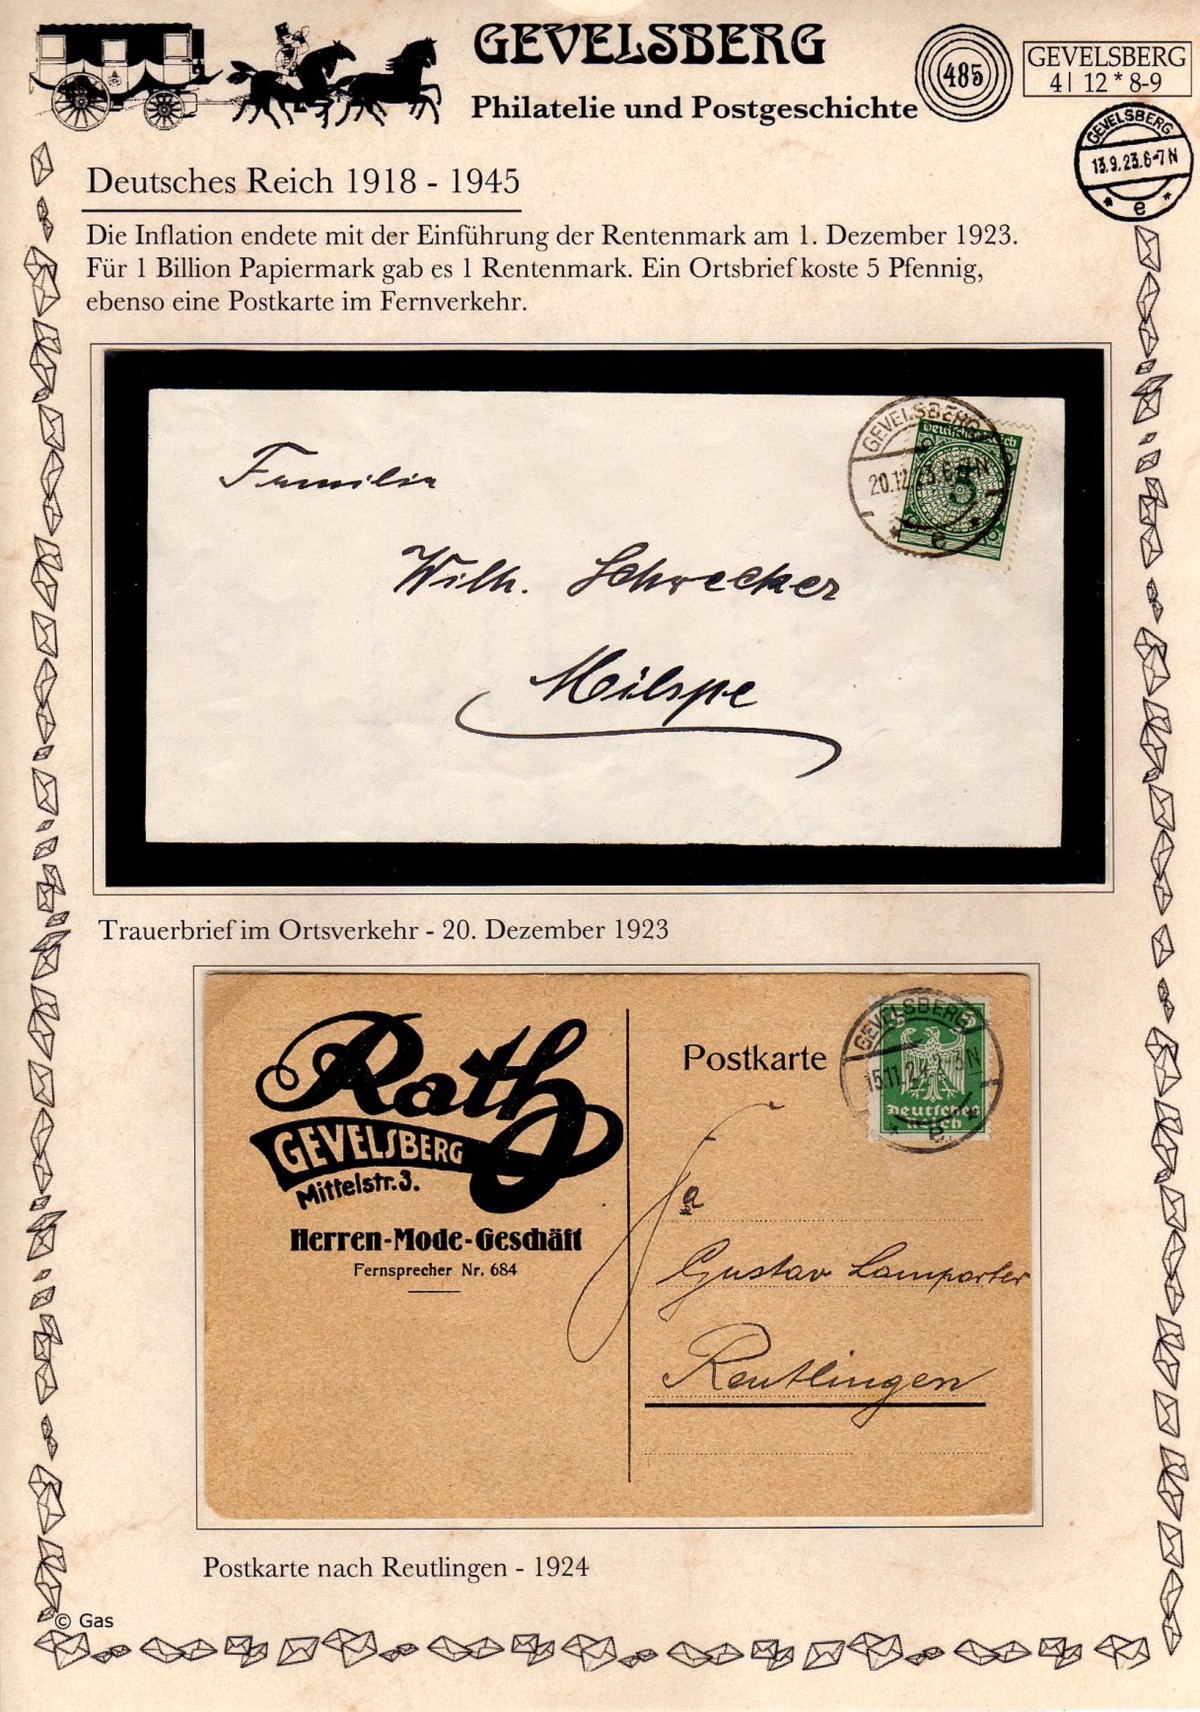 GEVELSBERG
Philatelie und Postgeschichte
485
GEVELSBERG
4| 12 * 8-9
GEVELSBERG
13.9.23.6-7N
* e *
Deutsches Reich 1918 - 1945
Die Inflation endete mit der Einführung der Rentenmark am 1. Dezember 1923.
Für 1 Billion Papiermark gab es 1 Rentenmark. Ein Ortsbrief koste 5 Pfennig,
ebenso eine Postkarte im Fernverkehr.
GEVELSBERG
20.12.23.6-7N
* e *
Deutsches Reich
5
Familie
Wilh. Schrecker
Milspe
Trauerbrief im Ortsverkehr - 20. Dezember 1923
Rath
GEVELSBERG
Mittelstr. 3.
Herren-Mode-Geschäft
Fernsprecher Nr. 684
Postkarte
GEVELSBERG
5 5
15.11.24.
Deutsches
Reich
e
Fa
Gustav Lamparter
Reutlingen
Postkarte nach Reutlingen - 1924
© Gas